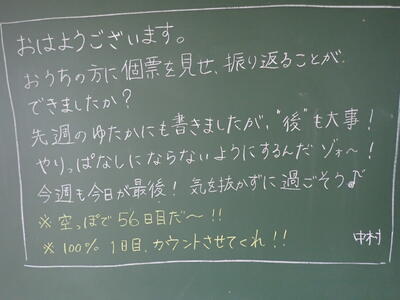 おはようございます。
おうちの方に個票を見せ、振り返ることが
できましたか?
先週のゆたかにも書きましたが、"後"も大事!
やりっぱなしにならないようにするんだゾォ〜!
今週も今日が最後!気を抜かずに過ごそう♪
※空っぽで56日目だ〜!!
※100% 1日目、カウントさせてくれ!!
中村